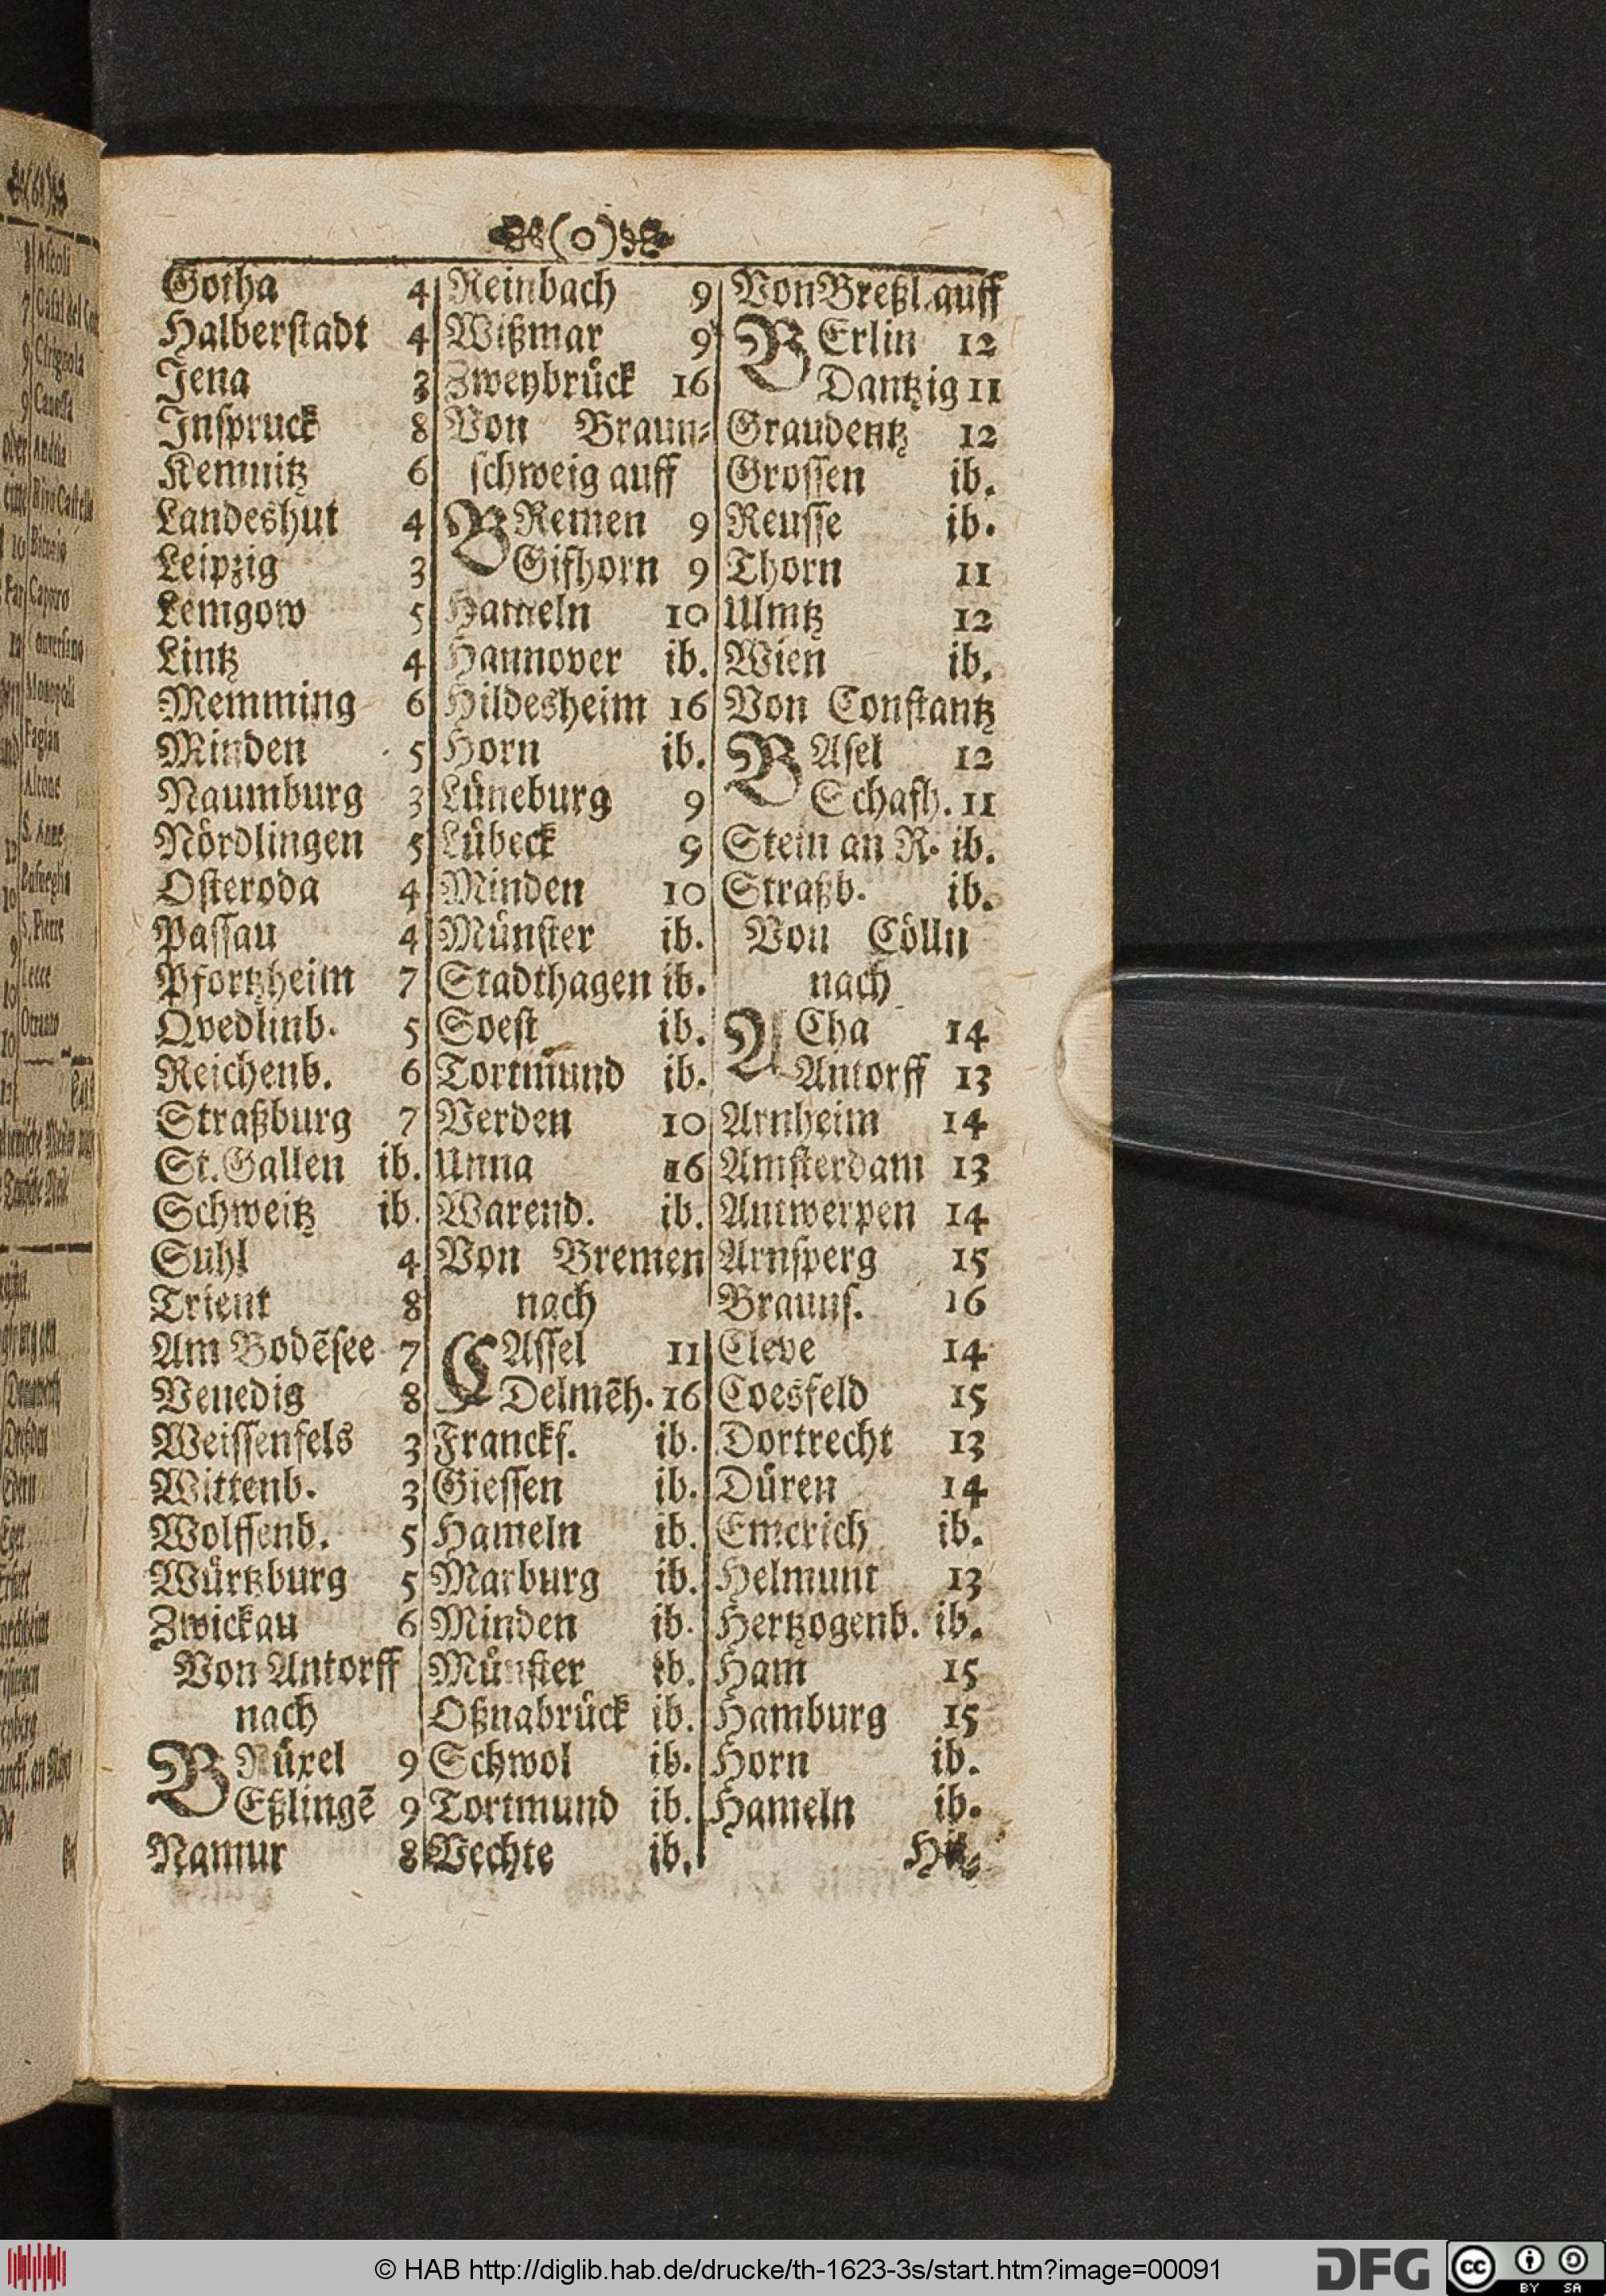 (0)
Gotha 4
Halberstadt 4
Jena 3
Inspruck 8
Kemnitz 6
Landeshut 4
Leipzig 3
Lemgow 5
Lintz 4
Memming 6
Minden 5
Naumburg 3
Nördlingen 5
Osteroda 4
Passau 4
Pfortzheim 7
Qvedlinb. 5
Reichenb. 6
Straßburg 7
St. Gallen ib.
Schweitz ib.
Suhl 4
Trient 8
Am Bodẽsee 7
Venedig 8
Weissenfels 3
Wittenb. 3
Wolffenb. 5
Würtzburg 5
Zwickau 6
Von Antorff
nach
BRüxel 9
Eßlingẽ 9
Namur 8
Reinbach 9
Wißmar 9
Zweybrück 16
Von Braun-
schweig auff
BRemen 9
Gifhorn 9
Hameln 10
Hannover ib.
Hildesheim 16
Horn ib.
Lüneburg 9
Lübeck 9
Minden 10
Münster ib.
Stadthagen ib.
Soest ib.
Tortmund ib.
Verden 10
Unna 16
Warend. ib.
Von Bremen
nach
CAssel 11
Delmẽh. 16
Franckf. ib.
Giessen ib.
Hameln ib.
Marburg ib.
Minden ib.
Münster ib.
Oßnabrück ib.
Schwol ib.
Tortmund ib.
Vechte ib.
Von Breßl. auff
BErlin 12
Dantzig 11
Graudentz 12
Grossen ib.
Reusse ib.
Thorn 11
Ulmtz 12
Wien ib.
Von Constantz
BAsel 12
Schafh. 11
Stein an R. ib.
Straßb. ib.
Von Cölln
nach
ACha 14
Antorff 13
Arnheim 14
Amsterdam 13
Antwerpen 14
Arnsperg 15
Brauns. 16
Cleve 14
Coesfeld 15
Dortrecht 13
Düren 14
Emerich ib.
Helmunt 13
Hertzogenb. ib.
Ham 15
Hamburg 15
Horn ib.
Hameln ib.
© HAB http://diglib.hab.de/drucke/th-1623-3s/start.htm?image=00091
DFG
cc
BY SA